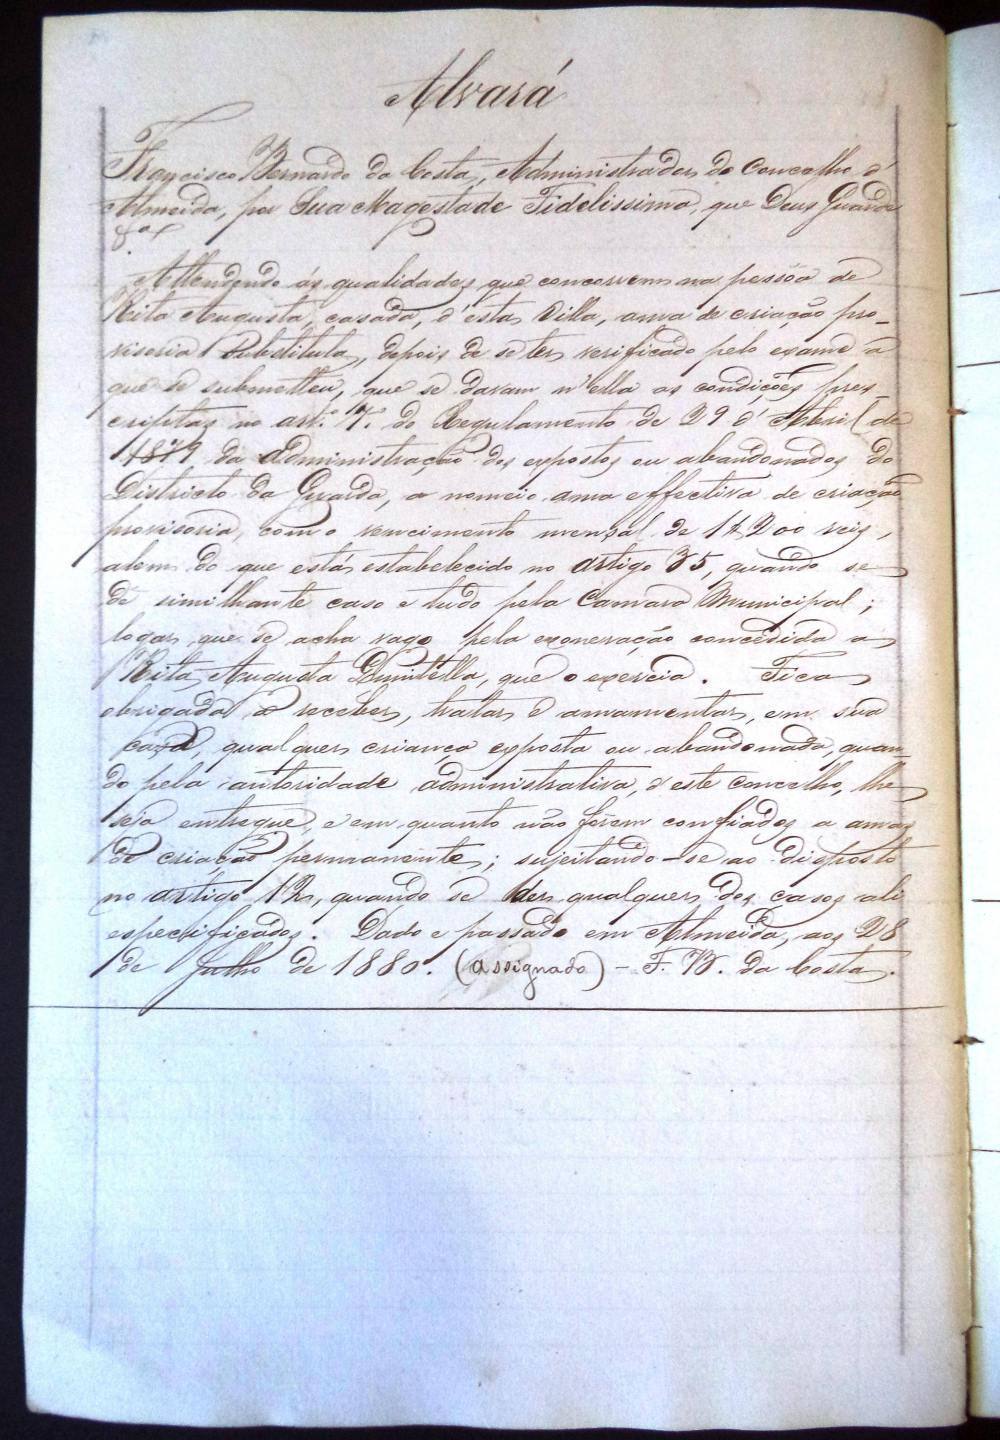 Alvará
Francisco Bernardo da Costa, Administrador do Concelho d'
Almeida, por Sua Magestade Fidelissima, que Deus Guarde
&a
Attendendo ás qualidades que concorrem na pessôa de
Rita Augusta, casada, d'esta Villa, ama de criação pro-
visoria Substituta, depois de se ter verificado pelo exame a
que se submetteu, que se davam n'ella as condições pres-
criptas no art.º 7.º do Regulamento de 29 d'Abril de
1879 da administração dos expostos ou abandonados do
Districto da Guarda, a nomeio ama effectiva de criação
provisoria, com o vencimento mensal de 1$200 reis,
alem do que está estabelecido no artigo 35, quando se
dê similhante caso e tudo pela Camara Municipal;
logar que se acha vago pela exoneração concedida a
Rita Augusta, que o exercia. Fica
obrigada a receber, tratar e amamentar, em sua
caza, qualquer criança exposta ou abandonada, quan-
do pela autoridade administrativa, d'este concelho, lhe
seja entregue, e em quanto não forem confiados a amas
de criação permanente; sujeitando-se ao disposto
no artigo 12, quando se der qualquer dos casos ali
especificados. Dado e passado em Almeida, aos 28
de Julho de 1880. (assignado) - F. B. da Costa.